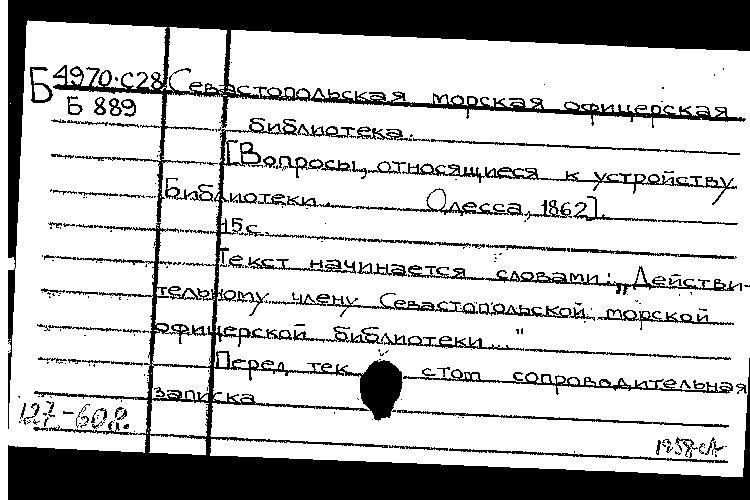 Б 4970.С28 Севастопольская морская офицерская
Б 889
библиотека.
[Вопросы, относящиеся к устройству
Библиотеки. Одесса, 1862].
15с.
Текст начинается словами: „Действи-
тельному члену Севастопольской морской
офицерской библиотеки..."
Перед тек стом сопроводительная
записка
127-608.